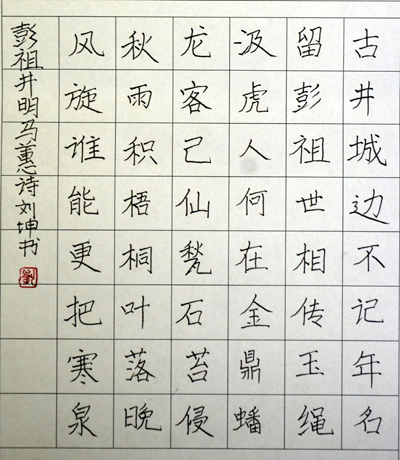 古井城边不记年名
留彭祖世相传玉绳
汲虎人何在金鼎蟠
龙客己仙甃石苔侵
秋雨积梧桐叶落晚
风旋谁能更把寒泉
彭祖井明马蕙诗刘坤书